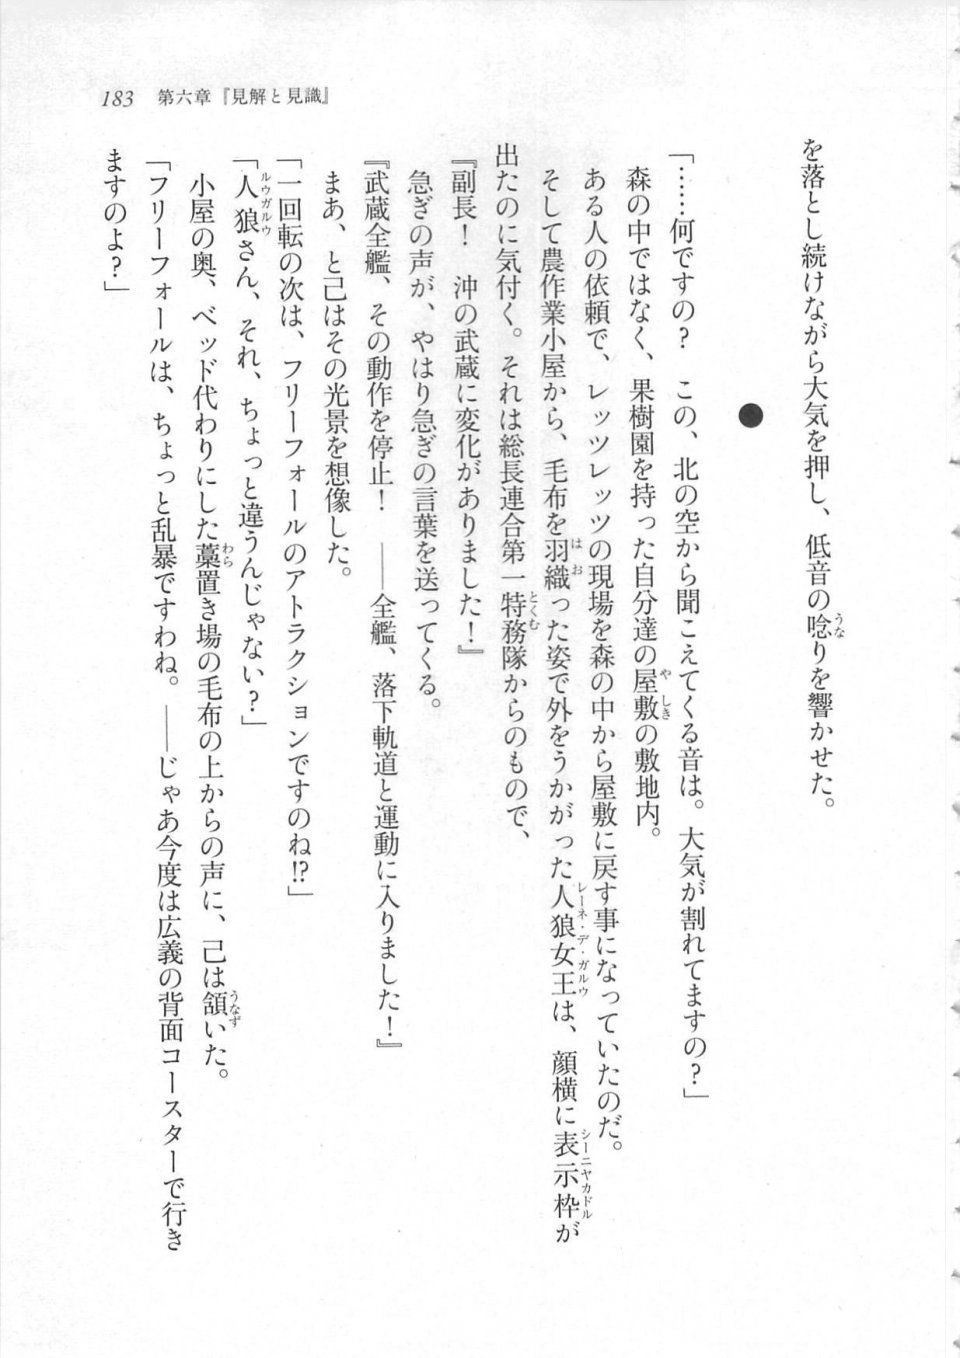 183 第六章『見解と見識』
を落とし続けながら大気を押し、低音の唸りを響かせた。
●
「……何ですの？　この、北の空から聞こえてくる音は。大気が割れてますの？」
森の中ではなく、果樹園を持った自分達の屋敷の敷地内。
ある人の依頼で、レッツレッツの現場を森の中から屋敷に戻す事になっていたのだ。
そして農作業小屋から、毛布を羽織った姿で外をうかがった人狼女王は、顔横に表示枠が
出たのに気付く。それは総長連合第一特務隊からのもので、
『副長！　沖の武蔵に変化がありました！』
急ぎの声が、やはり急ぎの言葉を送ってくる。
『武蔵全艦、その動作を停止！　――全艦、落下軌道と運動に入りました！』
まあ、と己はその光景を想像した。
「一回転の次は、フリーフォールのアトラクションですのね!?」
「人狼さん、それ、ちょっと違うんじゃない？」
小屋の奥、ベッド代わりにした藁置き場の毛布の上からの声に、己は頷いた。
「フリーフォールは、ちょっと乱暴ですわね。――じゃあ今度は広義の背面コースターで行き
ますのよ？」